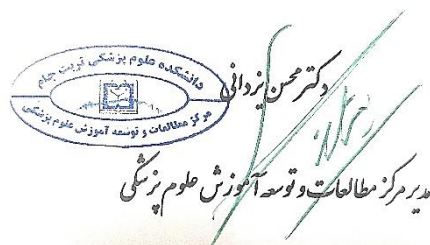 دانشکده علوم پزشکی تربت جام
مرکز مطالعات و توسعه آموزش علوم پزشکی
دکتر محسن یزدانی
مدیر مرکز مطالعات و توسعه آموزش علوم پزشکی